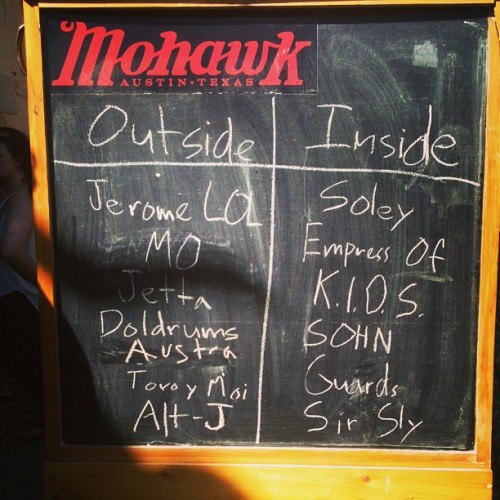 Mohawk
AUSTIN • TEXAS
Outside
Inside
Jerome LOL
MO
Jetta
Doldrums
Austra
Toro y Moi
Alt-J
Soley
Empress Of
K.I.D.S.
SOHN
Guards
Sir Sly